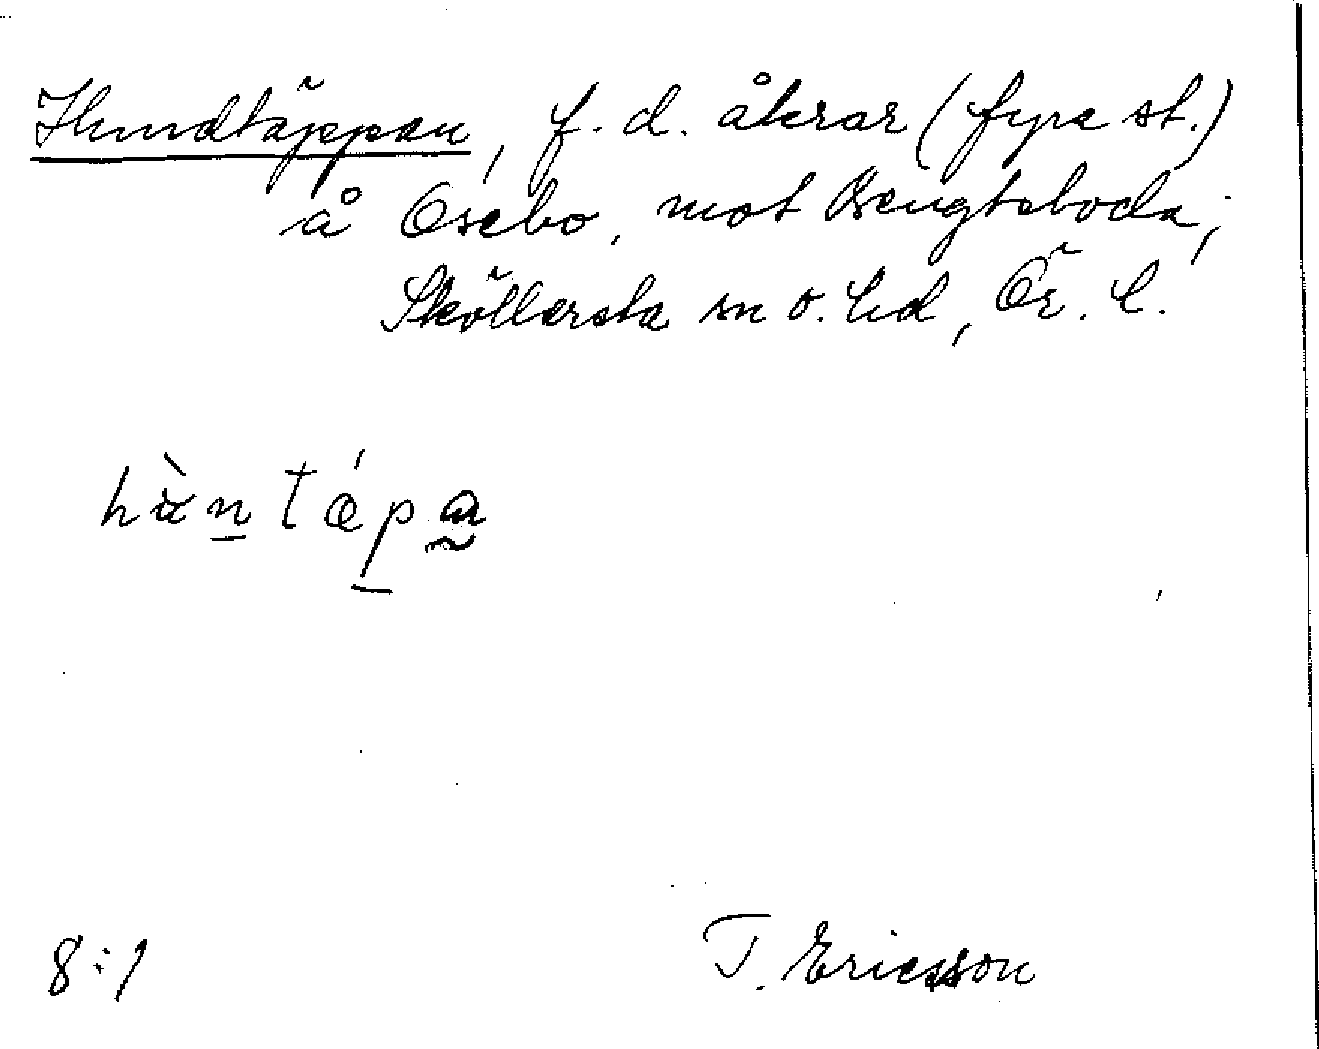 Hundtäppan, f. d. åkrar (fyra st.)
å Osebo, mot Bengtsboda;
Sköllersta sn o. hd, Ör. l.
hùntǽpa
8:1
T. Ericsson